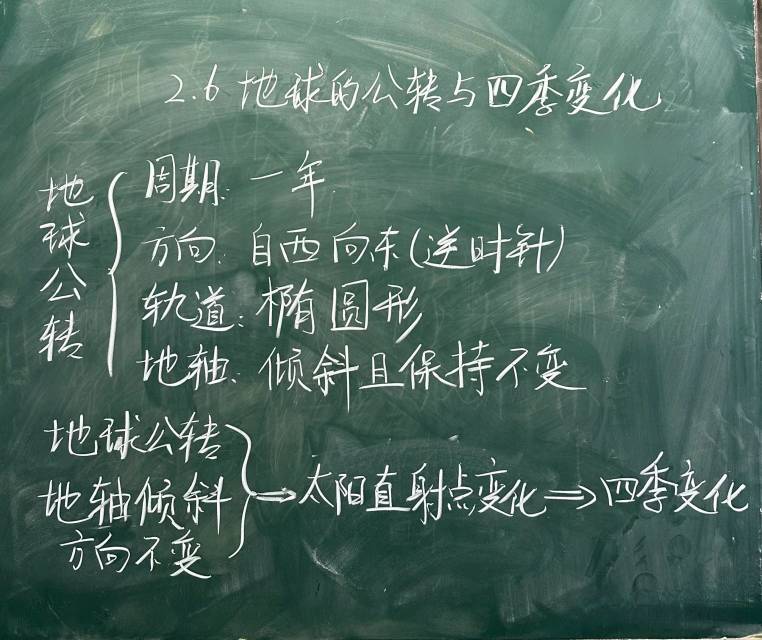 2.6 地球的公转与四季变化
地球公转
周期: 一年
方向: 自西向东(逆时针)
轨道: 椭圆形
地轴: 倾斜且保持不变
地球公转
地轴倾斜
方向不变
⇒太阳直射点变化⇒四季变化